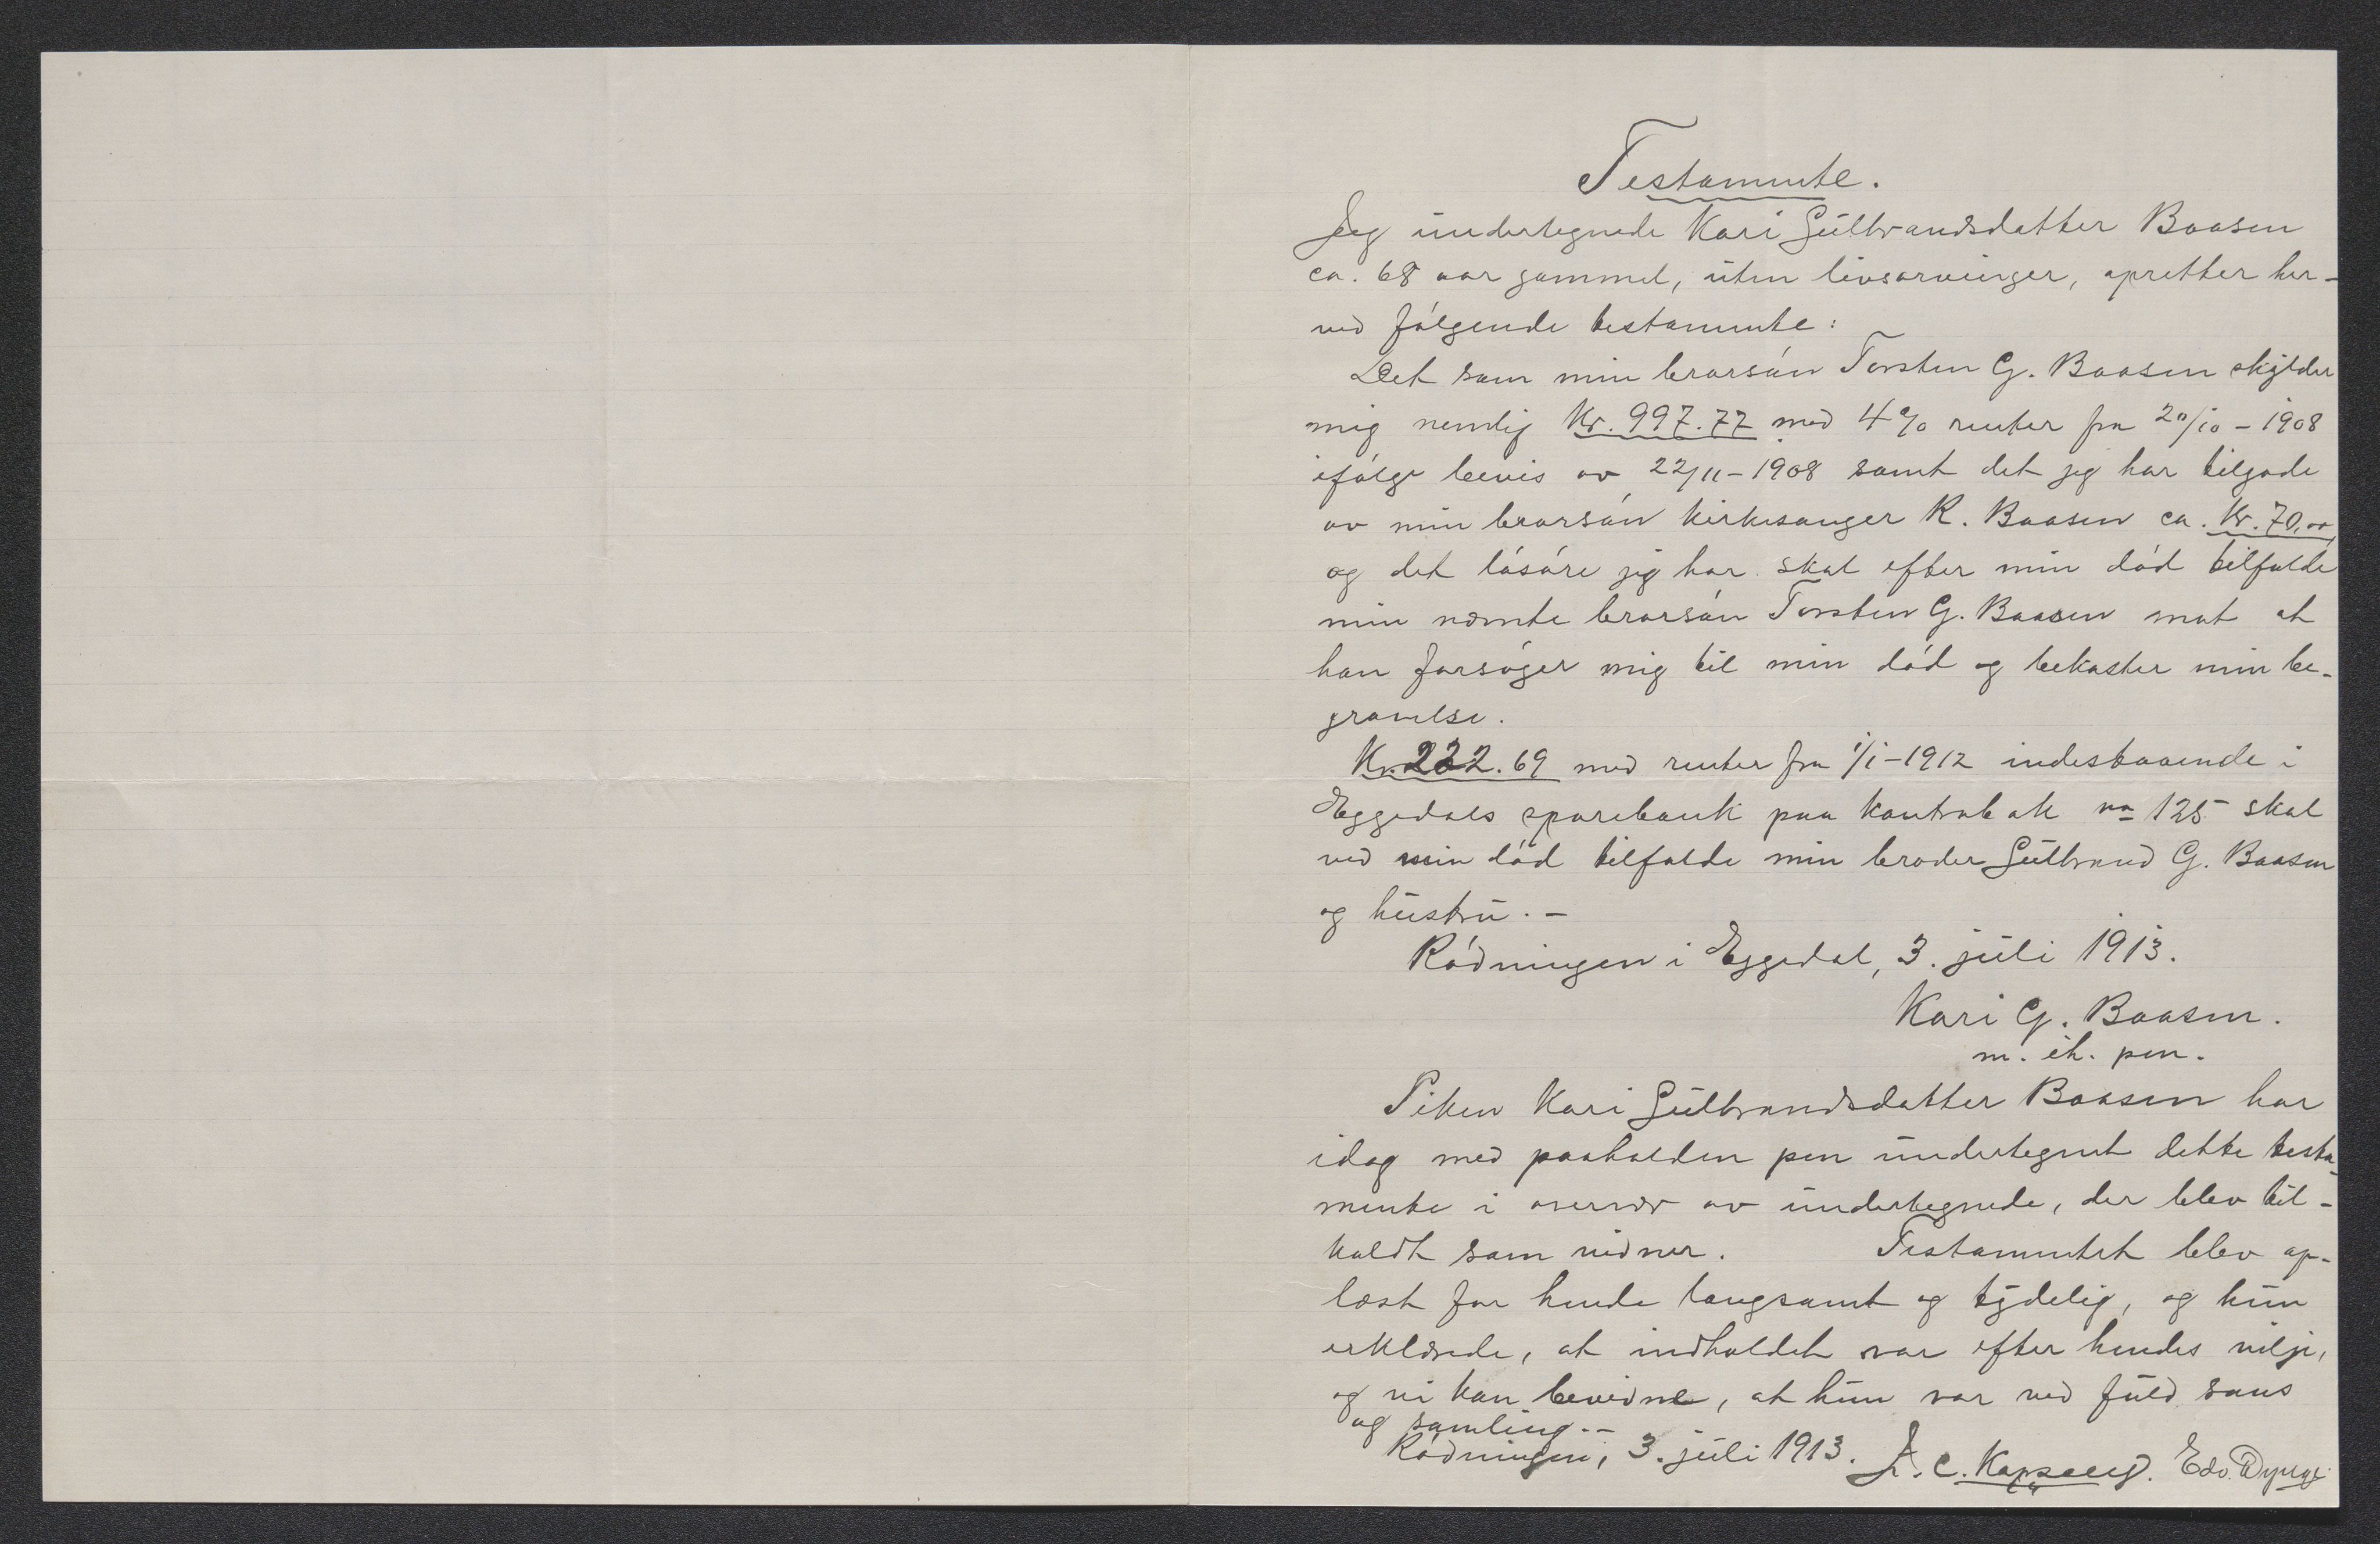 Testamente.
Jeg undertegnede Kari Gulbrandsdatter Baasen
ca. 68 aar gammel, uten livsarvinger, opretter her-
ved følgende testamente:
Det som min brorsøn Torsten G. Baasen skylder
mig nemlig Kr. 997.77 med 4% renter fra 20/10-1908
ifølge bevis av 22/11-1908 samt det jeg har tilgode
av min brorsøn kirkesanger K. Baasen ca. Kr. 70,00,
og det løsøre jeg har skal efter min død tilfalde
min nævnte brorsøn Torsten G. Baasen mot at
han forsøger mig til min død og bekoster min be-
gravelse.
Kr. 232.69 med renter fra 1/1-1912 indestaaende i
Eggedals sparebank paa kontrabok no 125 skal
ved min død tilfalde min broder Gulbrand G. Baasen
og hustru.-
Rødningen i Eggedal, 3. juli 1913.
Kari G. Baasen.
m. ih. pen.
Piken Kari Gulbrandsdatter Baasen har
idag med paaholden pen undertegnet dette testa-
mente i overvær av undertegnede, der blev til-
kaldt som vidner. Testamentet blev op-
læst for hende langsamt og tydelig, og hun
erklærede, at indholdet var efter hendes vilje,
og vi kan bevidne, at hun var ved fuld sans
og samling.-
Rødningen, 3. juli 1913. C. Edv.